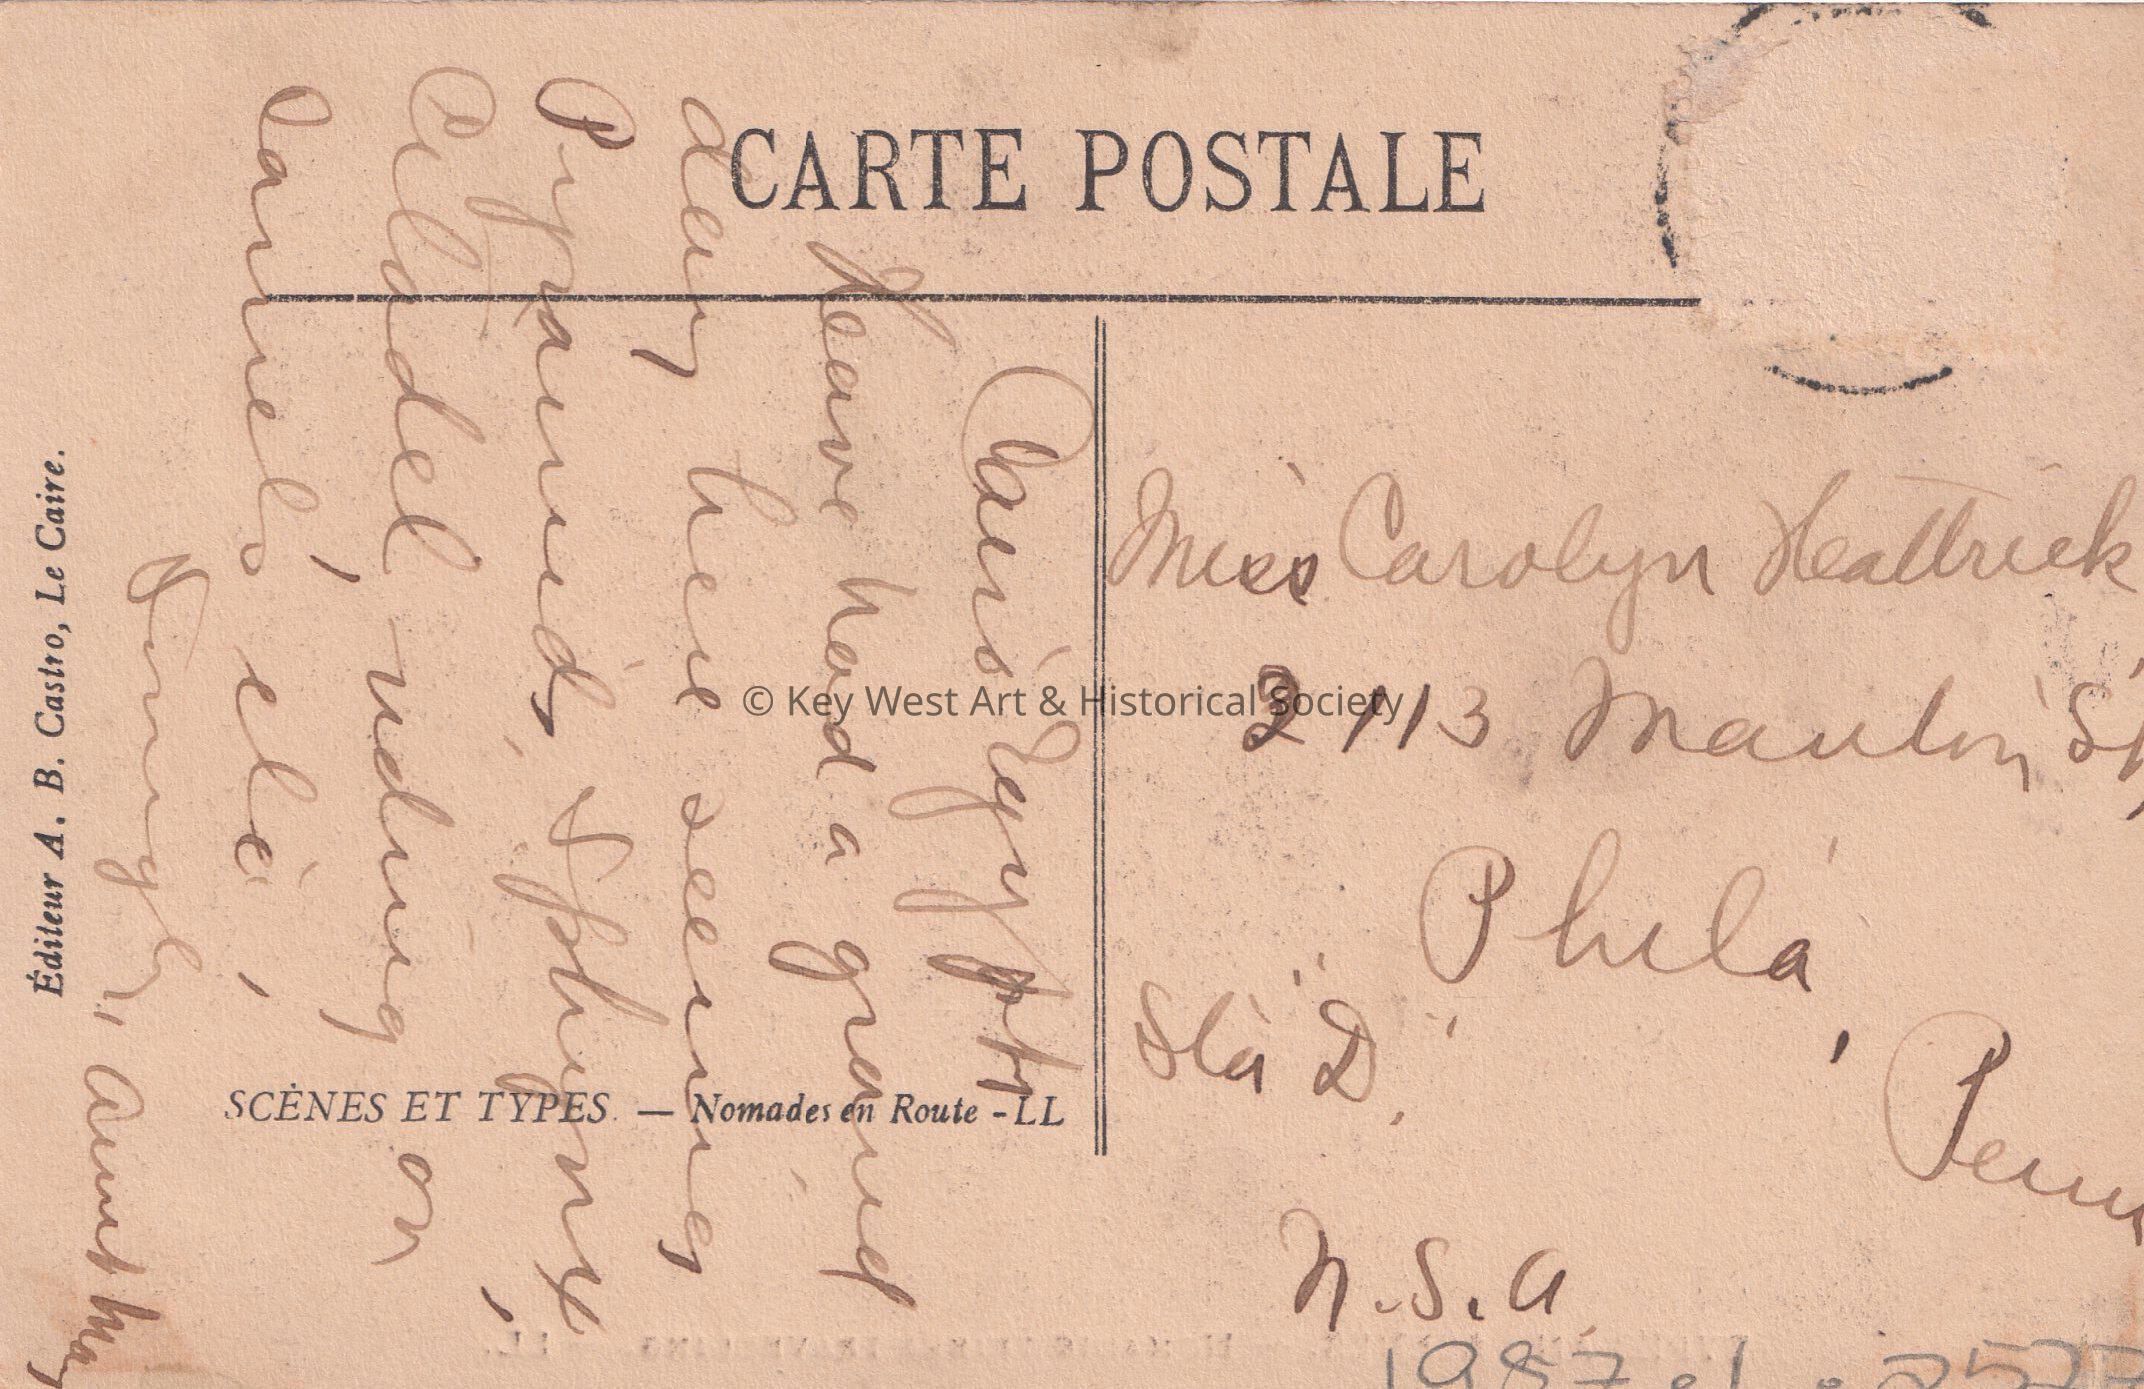 CARTE POSTALE
Cairo Egypt
Have had a grand
day here seeing
Pyramids, Sphinx,
Citadel, riding on
camels etc.,
Aunt May
Miss Carolyn Heattrick
2113 Manton St,
Phila,
Sta "D".
Penn
U.S.A
SCÈNES ET TYPES. — Nomades en Route - LL
Éditeur A. B. Castro, Le Caire.
© Key West Art & Historical Society
1987.1.